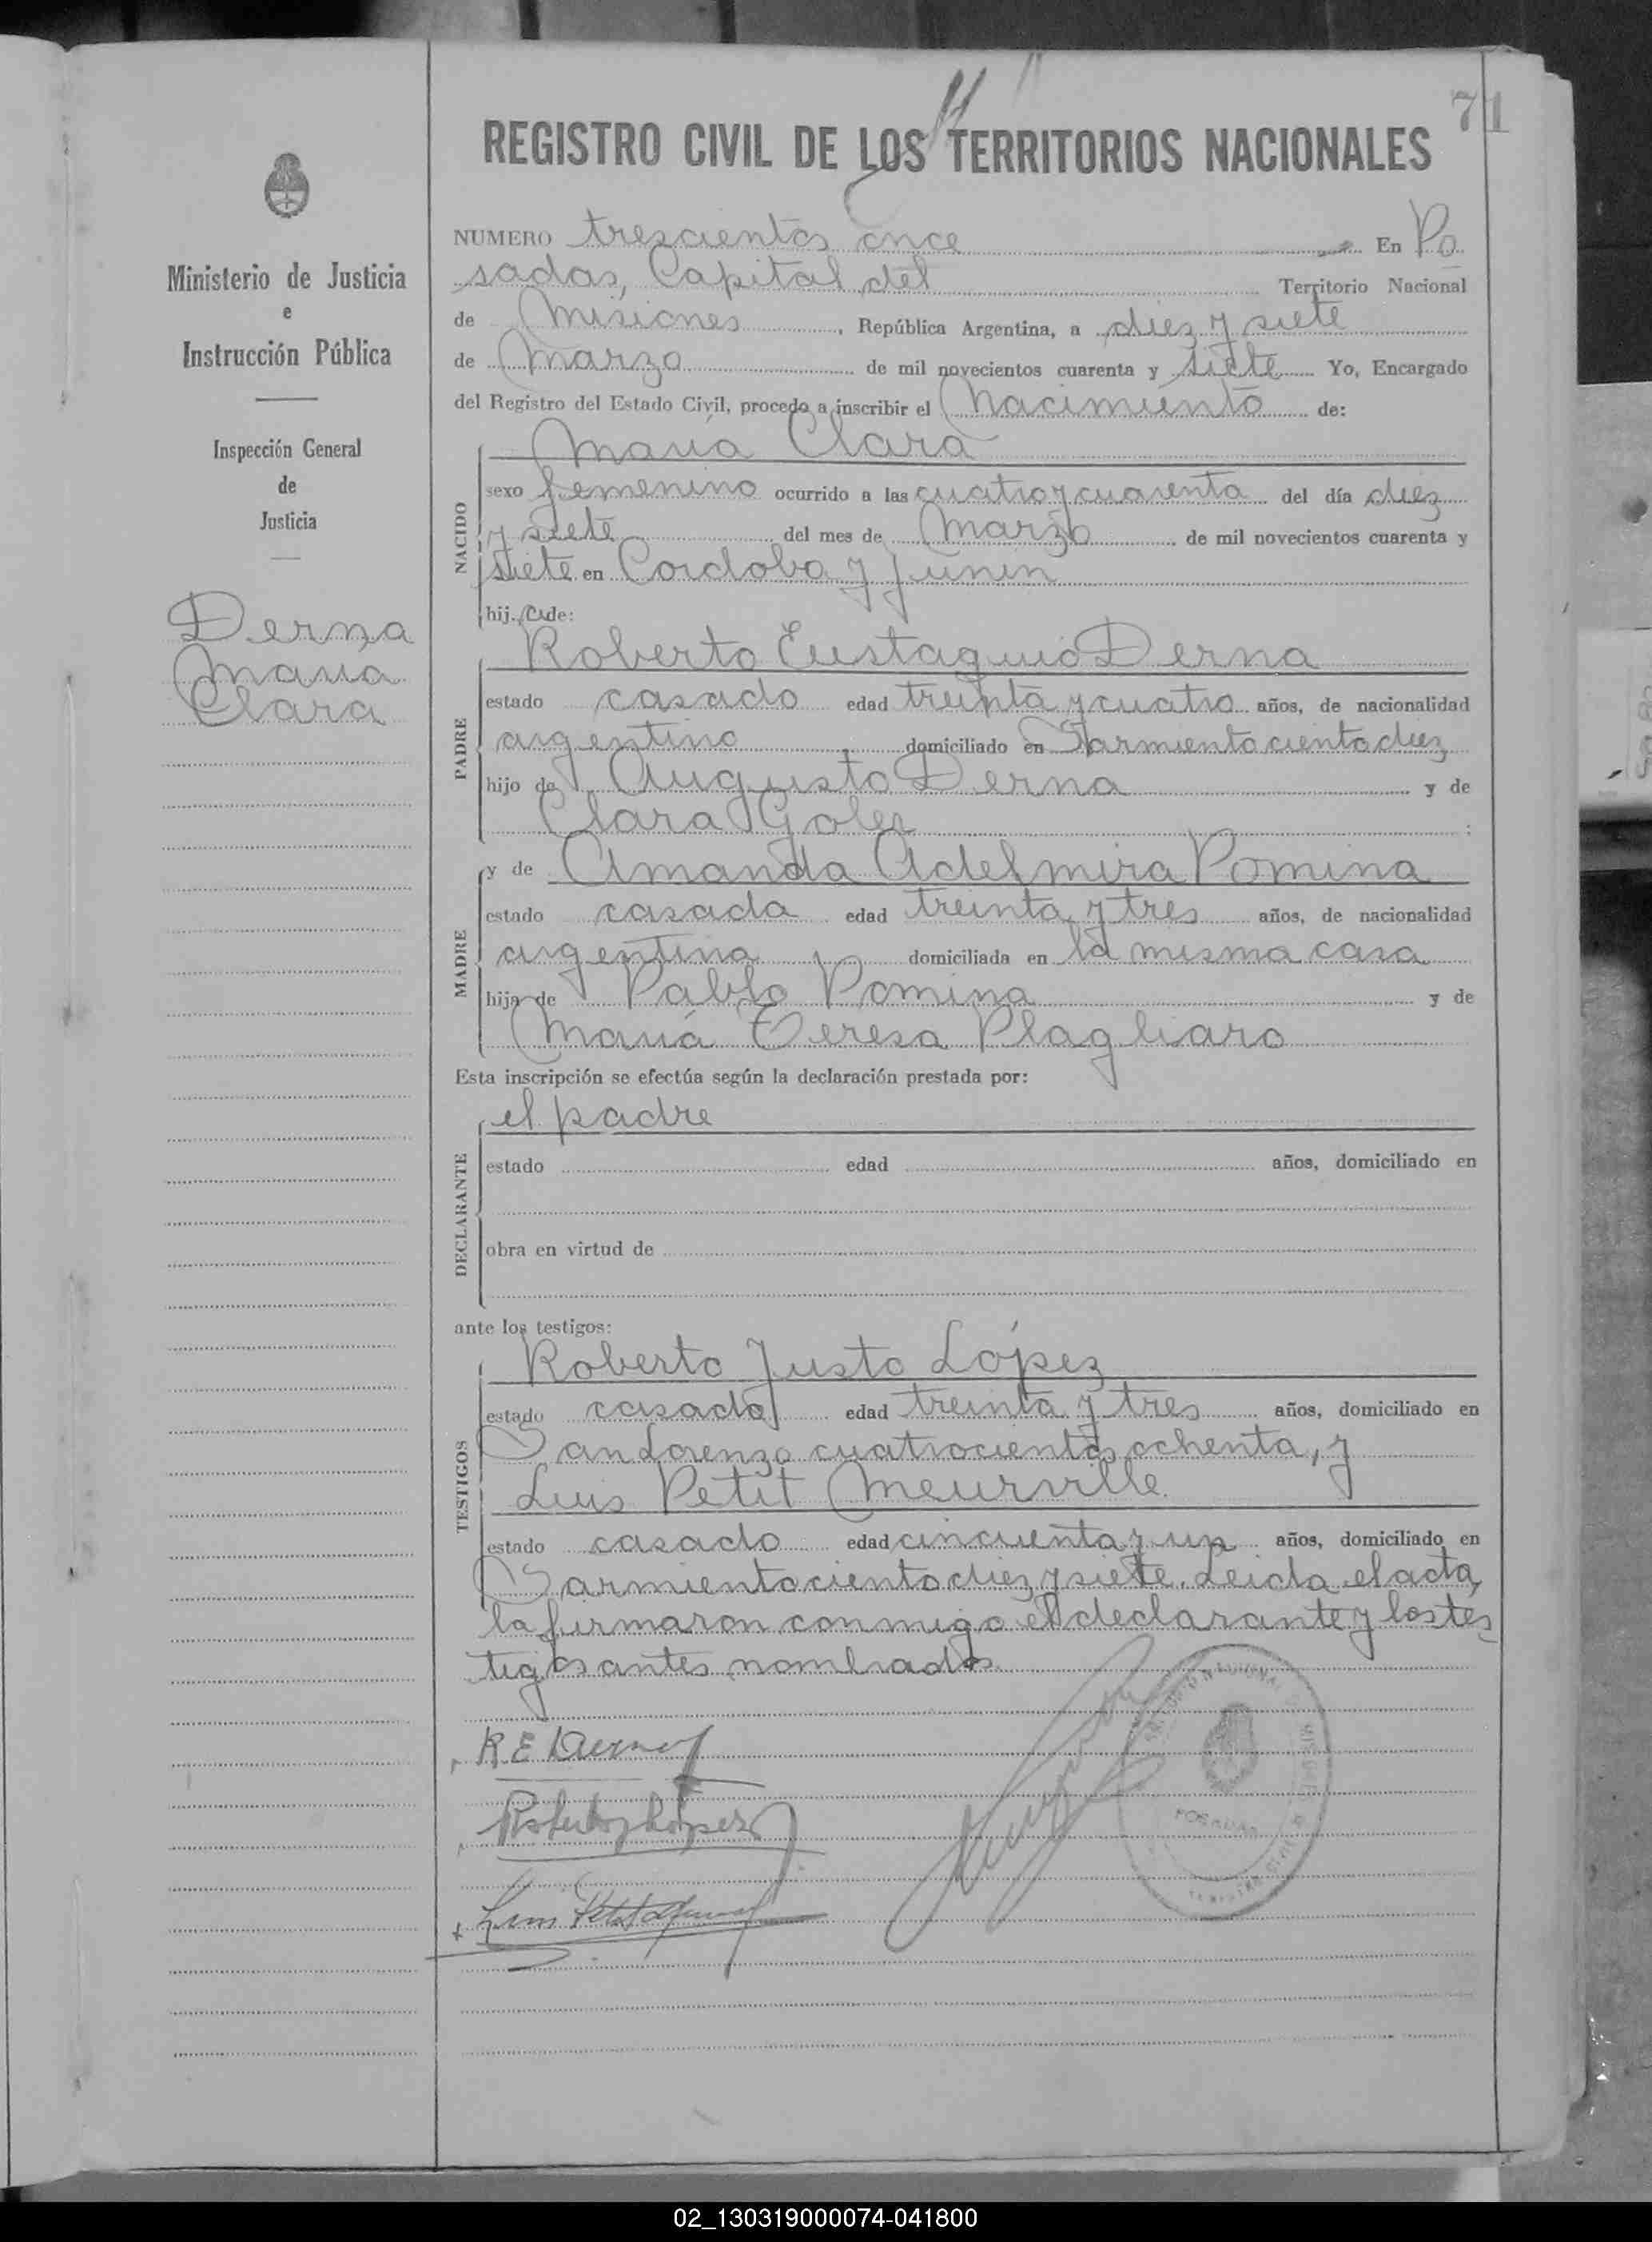 71
REGISTRO CIVIL DE LOS TERRITORIOS NACIONALES
Ministerio de Justicia
e
Instrucción Pública
Inspección General
de
Justicia
Derna
María
Clara
NUMERO trescientos once En Po
sadas, Capital del Territorio Nacional
de Misiones, República Argentina, a diez y siete
de Marzo de mil novecientos cuarenta y siete Yo, Encargado
del Registro del Estado Civil, procedo a inscribir el Nacimiento de:
María Clara
NACIDO
sexo femenino ocurrido a las cuatro y cuarenta del día diez
y siete del mes de Marzo de mil novecientos cuarenta y
siete en Cordoba y Junin
hij.a de:
Roberto Eustaquio Derna
PADRE
estado casado edad treinta y cuatro años, de nacionalidad
argentino domiciliado en Sarmiento ciento diez
hijo de Augusto Derna y de
Clara ;
y de Amanda Adelmira Pomina
MADRE
estado casada edad treinta y tres años, de nacionalidad
argentina domiciliada en la misma casa
hija de Pablo Pomina y de
María Teresa Plagliaro
Esta inscripción se efectúa según la declaración prestada por:
el padre
DECLARANTE
estado edad años, domiciliado en
obra en virtud de
ante los testigos:
Roberto Justo López
TESTIGOS
estado casado edad treinta y tres años, domiciliado en
San Lorenzo cuatrocientos ochenta, y
Luis Petit Meurville
estado casado edad cincuenta y un años, domiciliado en
Sarmiento ciento diez y siete. Leida el acta,
la firmaron conmigo el declarante y los tes
tigos antes nombrados.
R E Derna
Roberto J López
Luis Petit
POSADAS
02_130319000074-041800